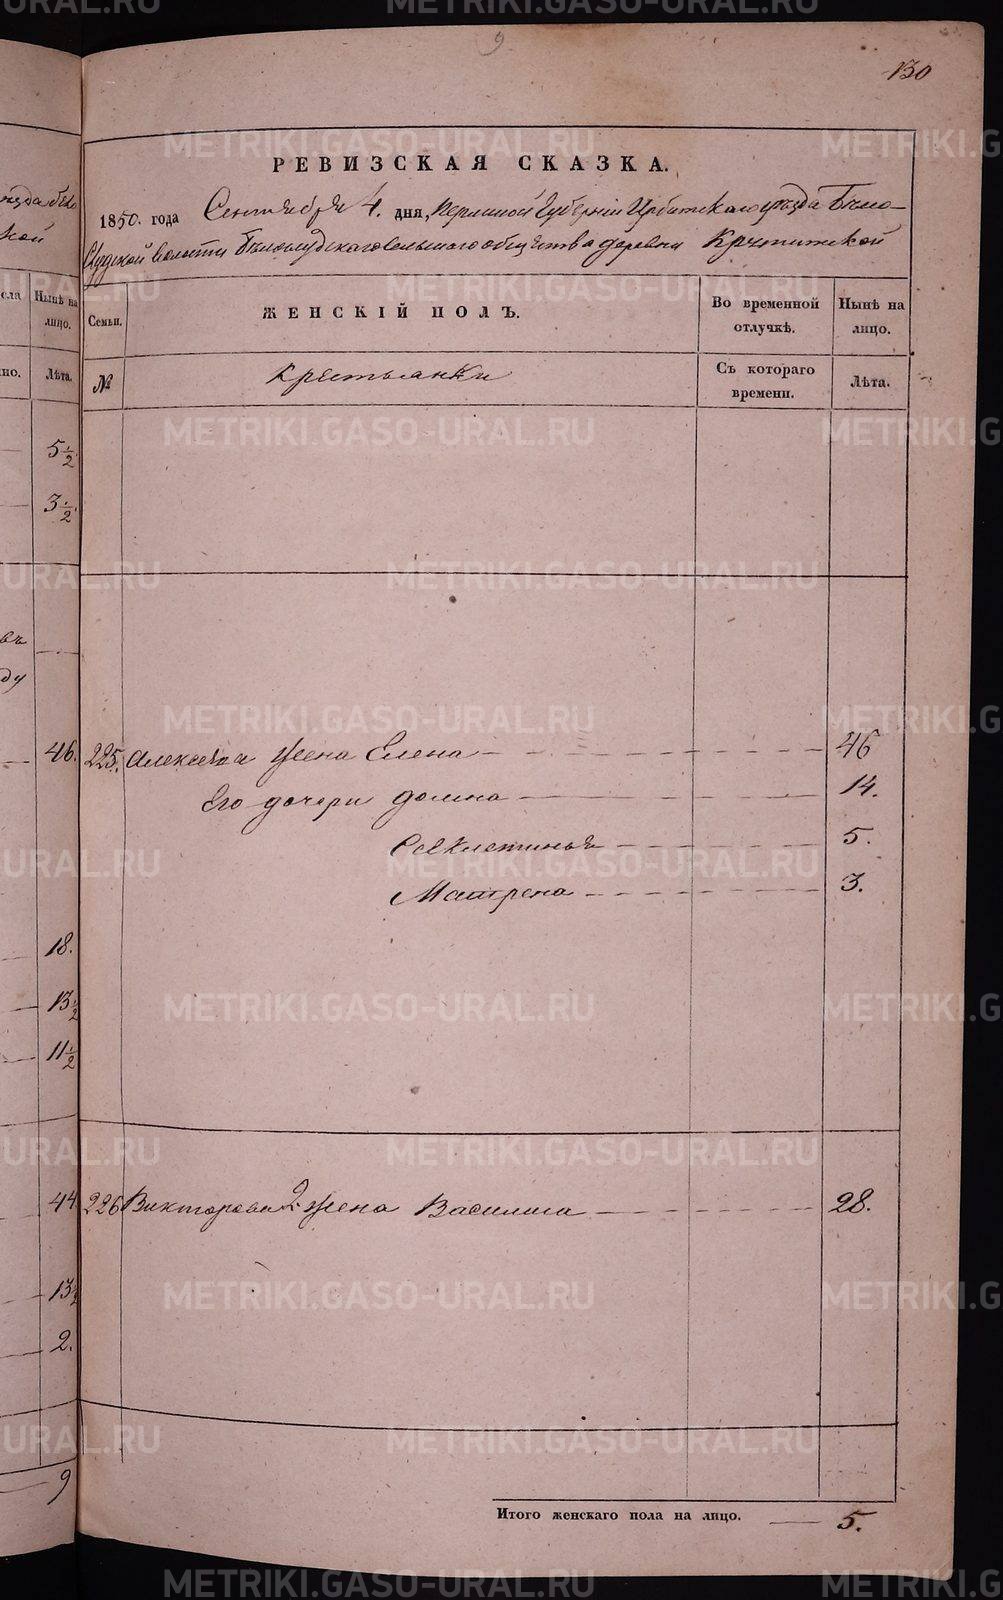 9
130
РЕВИЗСКАЯ СКАЗКА.
1850. года Сентября 4. дня, Пермской Губерніи Ирбитскаго уезда Бѣло-
Слудской волости Бѣлослудскаго сельскаго общества деревни
Семьи. ЖЕНСКІЙ ПОЛЪ. Во временной отлучкѣ. Нынѣ на лицо.
№ Крестьянки Съ котораго времени. Лѣта.
225. Алексѣя жена Елена 46
Его дочери Домна 14.
Секлетинья 5.
Матрена 3.
226 Викторова 2. жена Василиса 28.
Итого женскаго пола на лицо. 5.
сла Нынѣ на лицо.
но. Лѣта.
5 1/2
3 1/2
46.
18.
13 1/2
11 1/2
44
13 1/2
2.
9
METRIKI.GASO-URAL.RU